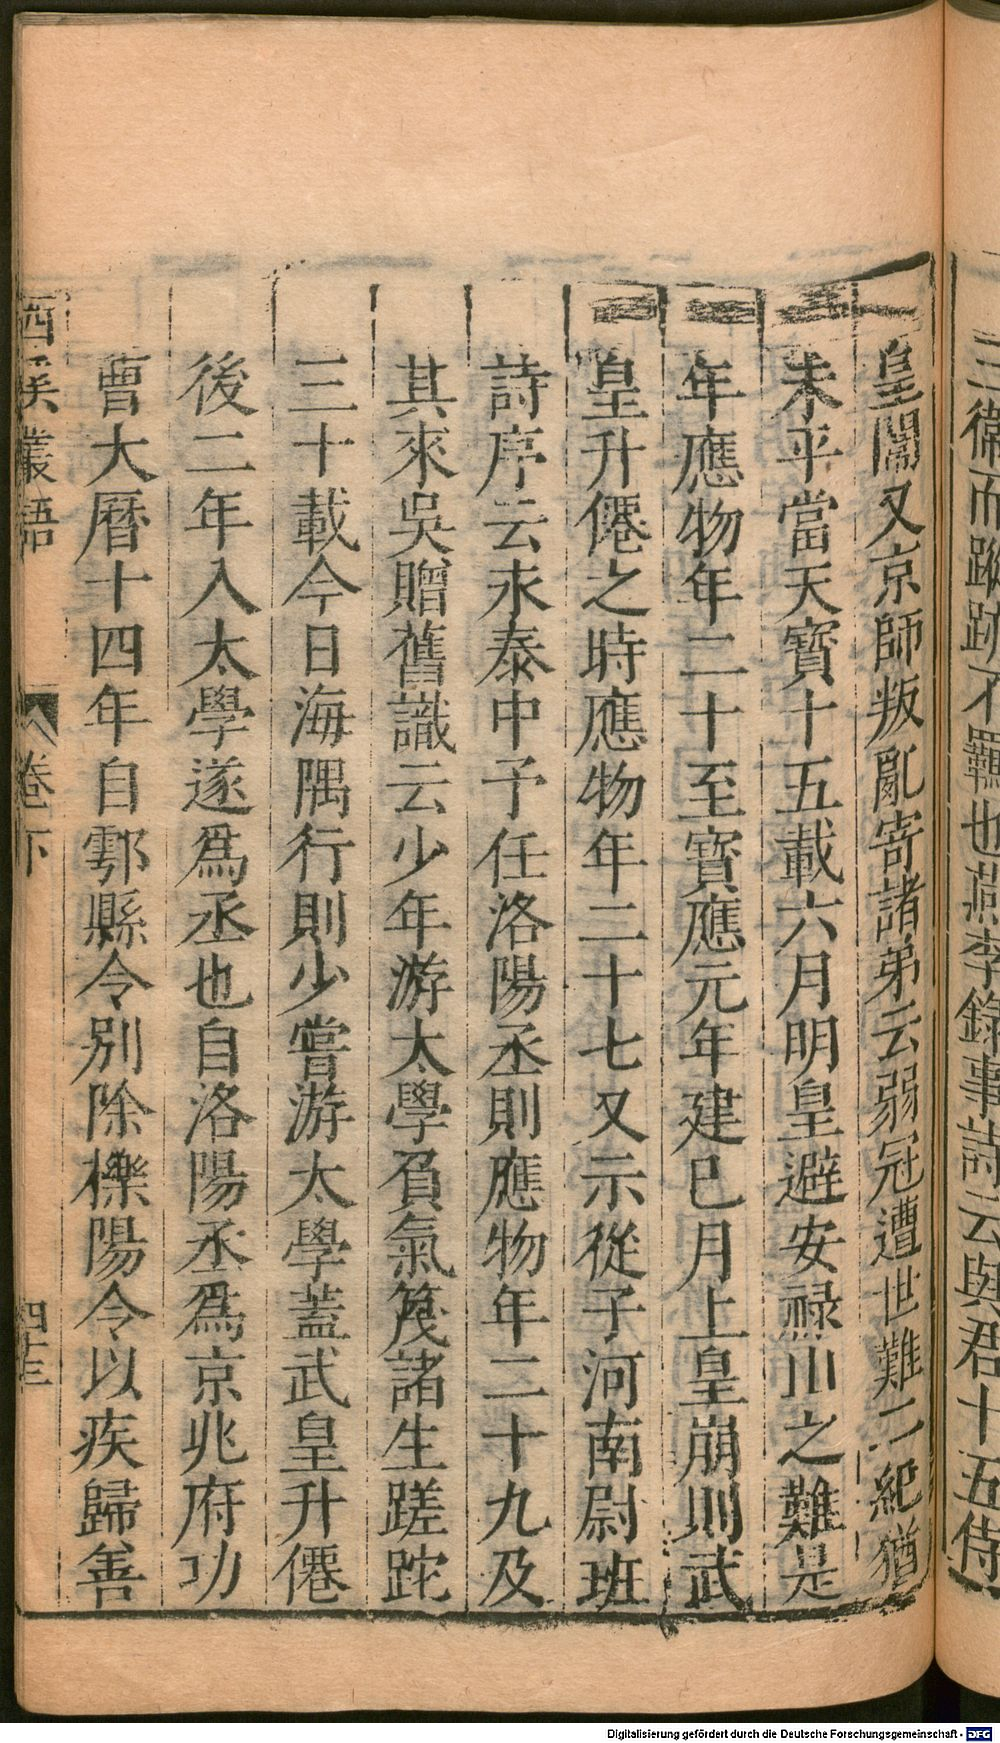 三衛而蹤跡不羈也燕李錄事詩云與君十五侍
皇闈又京師叛亂寄諸弟云弱冠遭世難二紀猶
未平當天寶十五載六月明皇避安祿山之難是
年應物年二十至寶應元年建巳月上皇崩則武
皇升僊之時應物年二十七又示從子河南尉班
詩序云永泰中予任洛陽丞則應物年二十九及
其來吳贈舊識云少年游太學負氣蔑諸生蹉跎
三十載今日海隅行則少嘗游太學蓋武皇升僊
後二年入太學遂爲丞也自洛陽丞爲京兆府功
曹大曆十四年自鄠縣令別除櫟陽令以疾歸善
西溪叢語 卷下 四十三
Digitalisierung gefördert durch die Deutsche Forschungsgemeinschaft - DFG